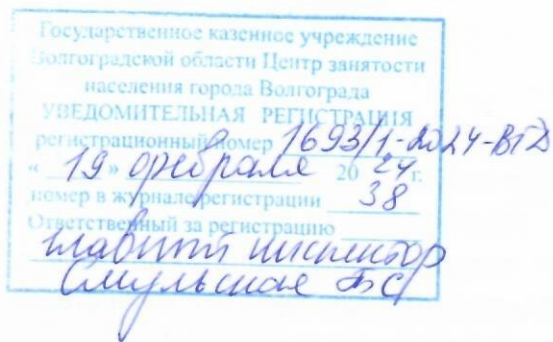 Государственное казенное учреждение
Волгоградской области Центр занятости
населения города Волгограда
УВЕДОМИТЕЛЬНАЯ РЕГИСТРАЦИЯ
регистрационный номер 1693/1-2024-ВГД
« 19 » февраля 20 24 г.
номер в журнале регистрации 38
Ответственный за регистрацию
главный инспектор